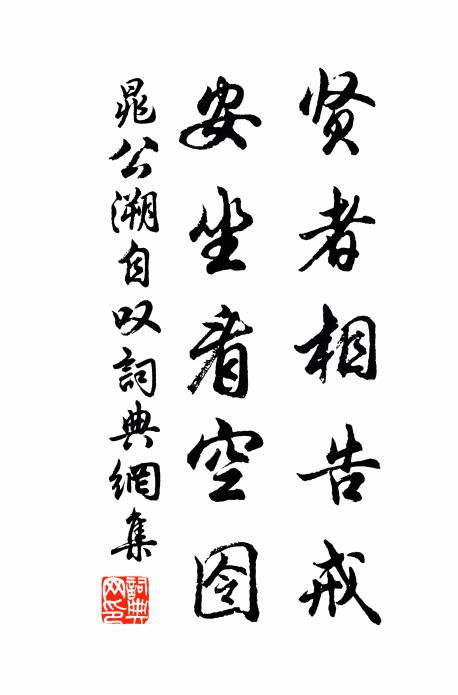 贤者相告戒
安坐看空囹
晁公溯自叹詞典網集
詞典网印